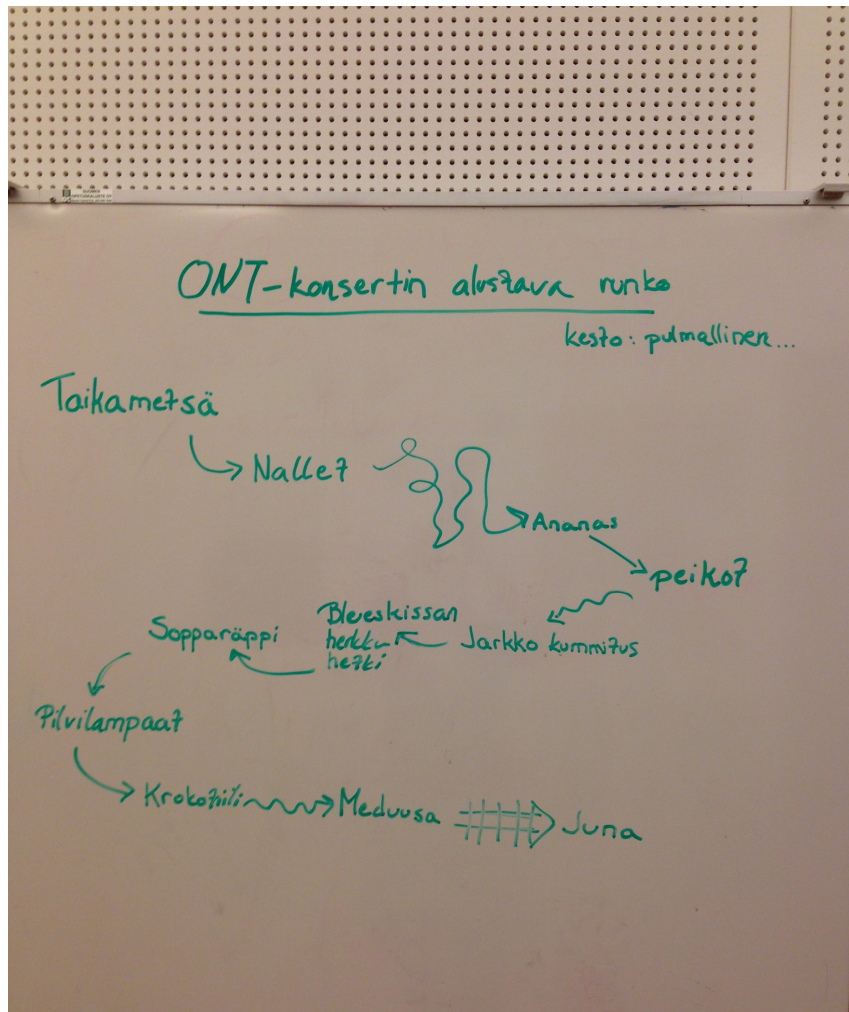 ONT-konsertin alustava runko
kesto: pulmallinen...
Taikametsä
Nallet
Ananas
peikot
Jarkko kummitus
Blueskissan
herkku
hetki
Sopparäppi
Pilvilampaat
Krokotiili
Meduusa
Juna